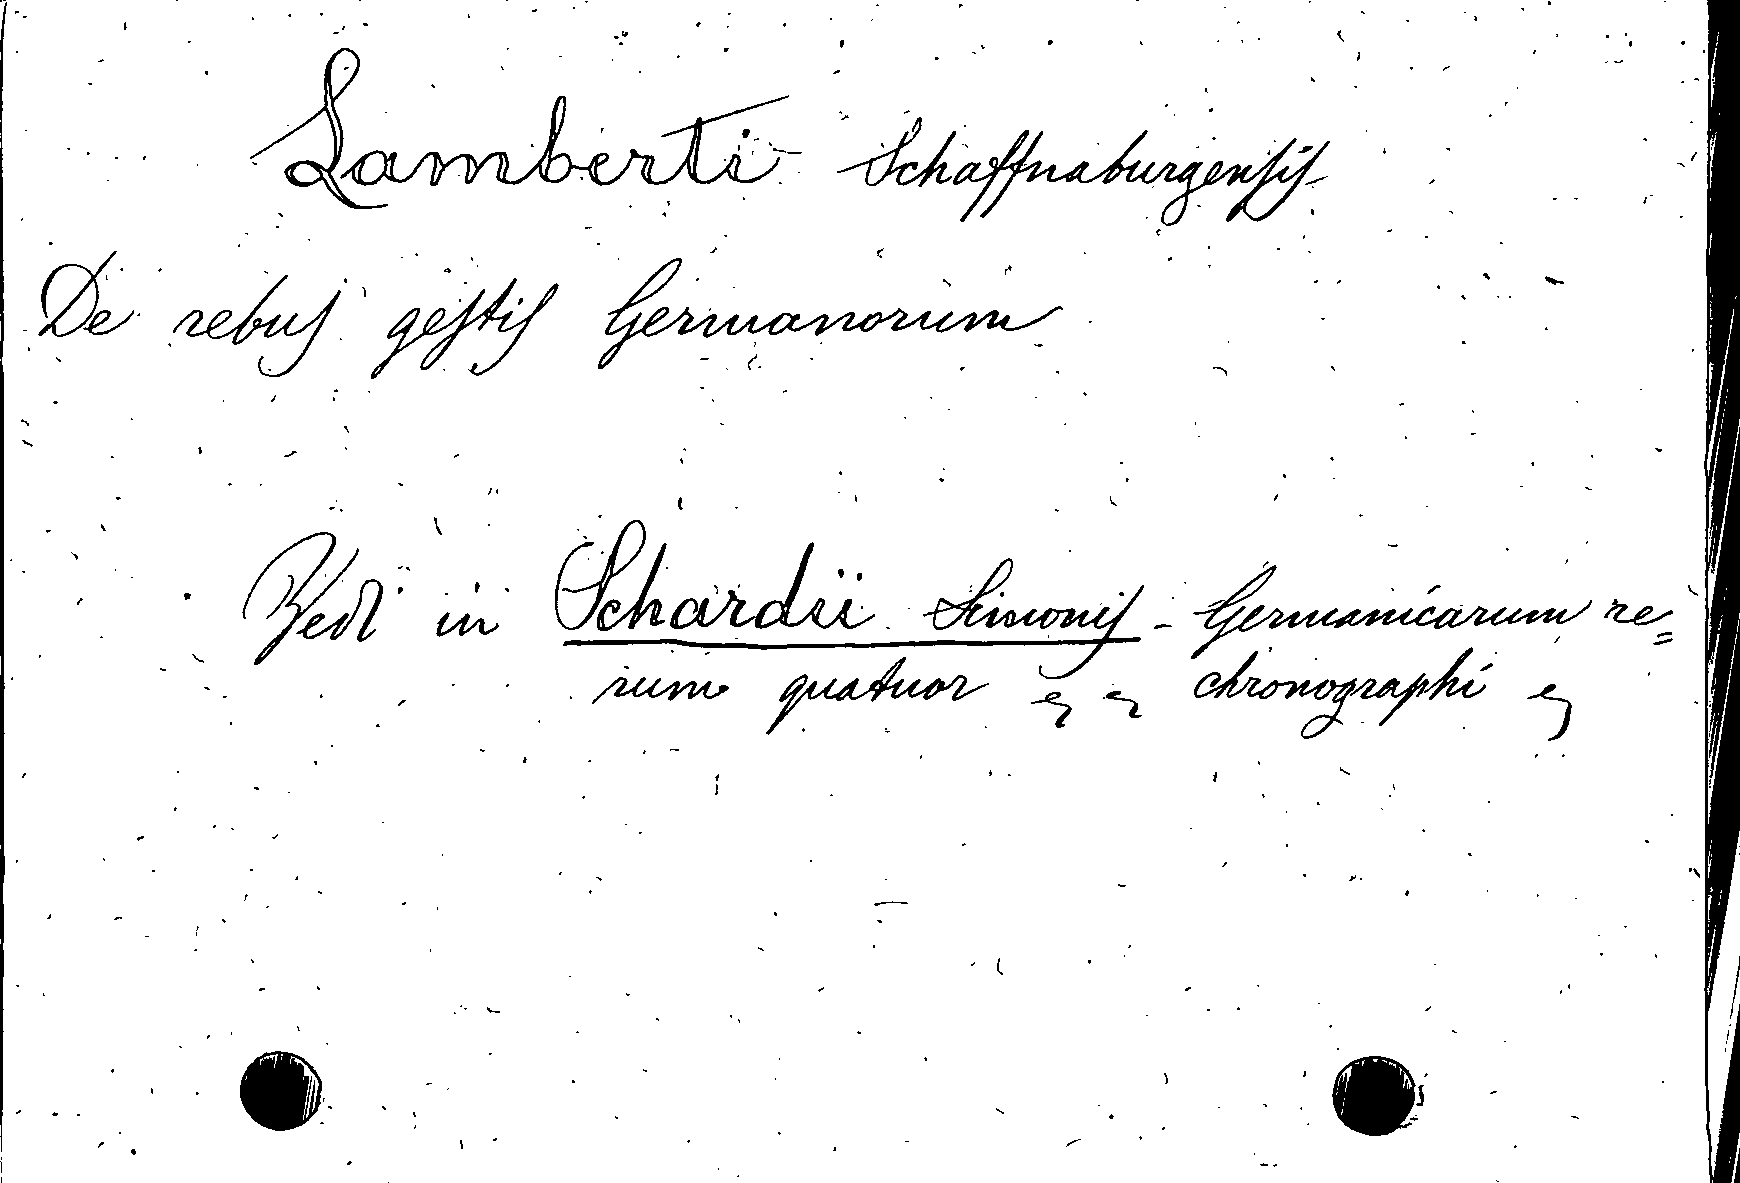 Lamberti Schaffnaburgensis
De rebus gestis Germanorum
in Schardii Simonis - Germanicarum re=
rum quatuor chronographi